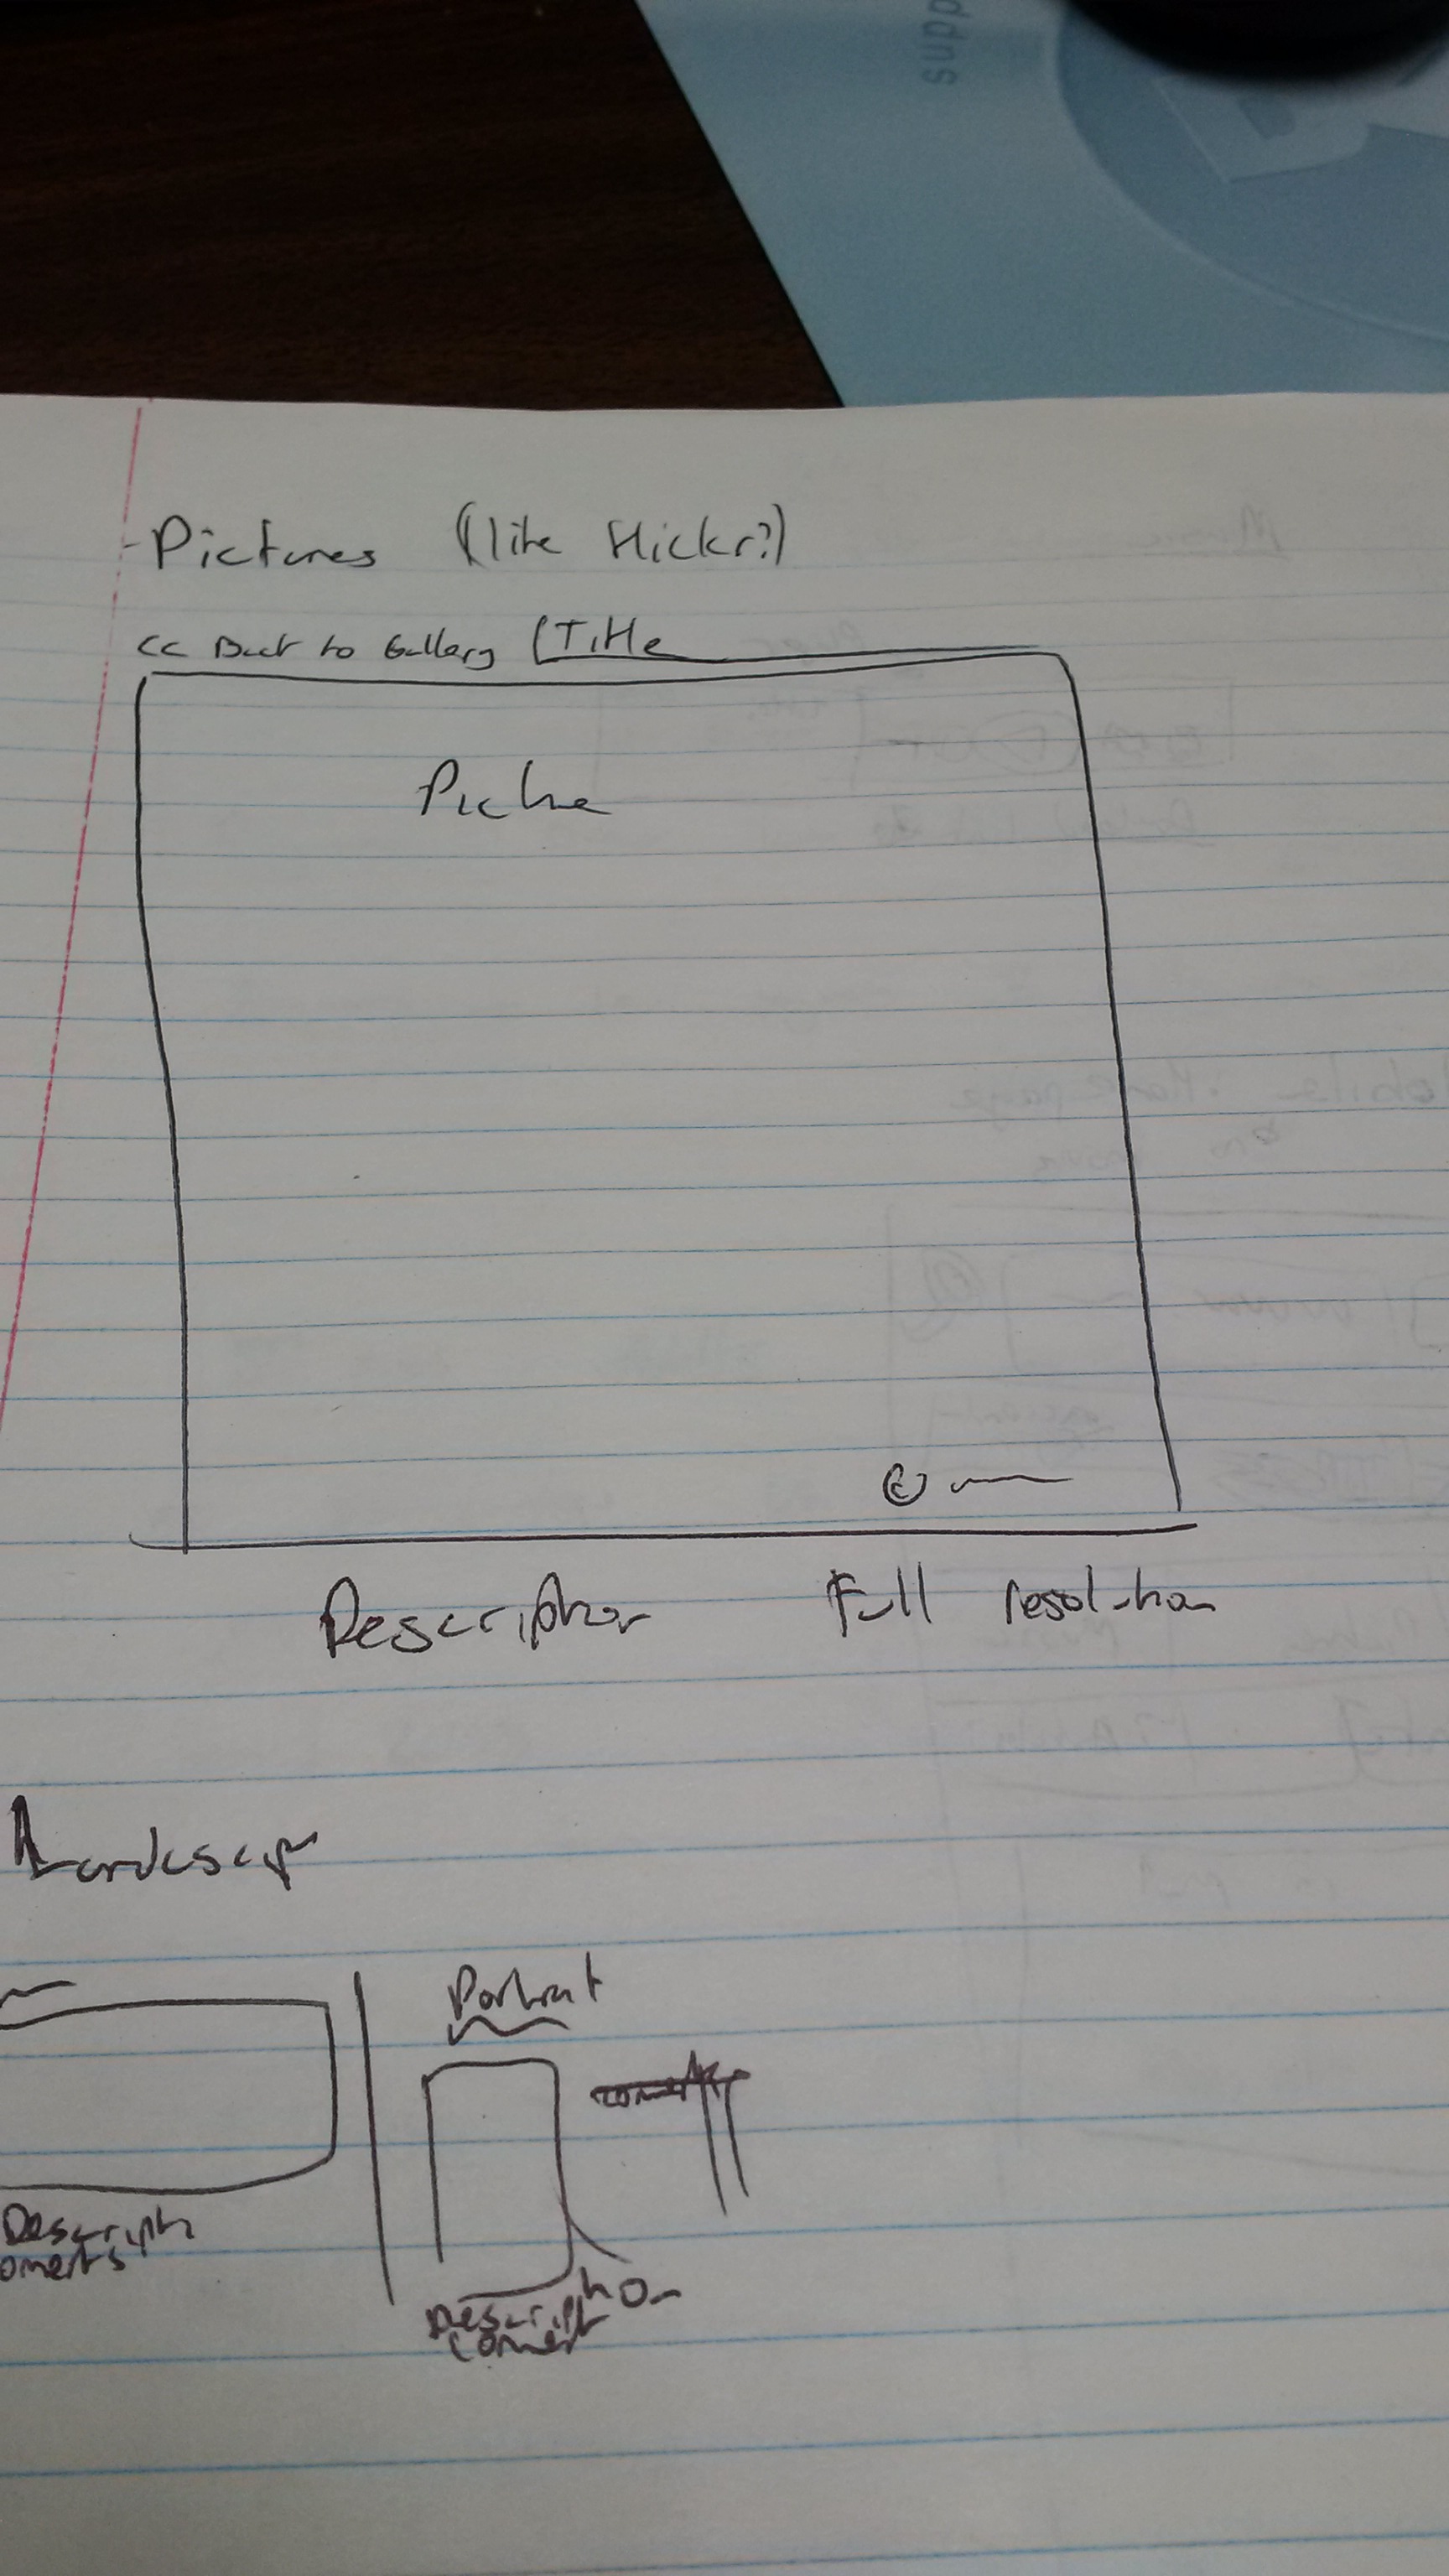 supp
- Pictures (like flickr?)
<< Back to Gallery Title
Picture
©
Description Full resolution
Landscape
Portrait
Description
oments
Description
Coment